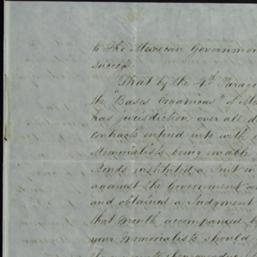 to the Mexican Governmen
success.
That by the 4th Parag
the "Bases Organicas" of M
has jurisdiction over all d
contracts entered into with
Memorialists being unable
Bonds instituted a Suit in
against the Government a
and obtained a Judgment
that month accompanied b
your Memorialists should